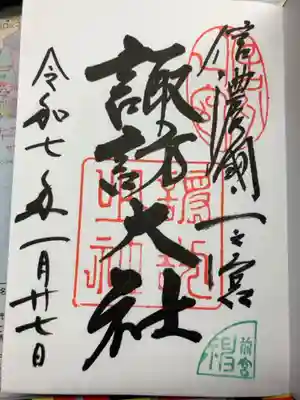 信濃國一之宮
諏訪大社
令和七年一月廿七日
前宮